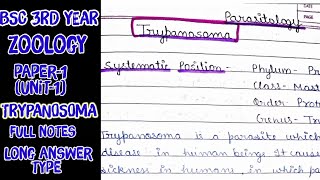 BSC 3RD YEAR
ZOOLOGY
PAPER-1
(UNIT-1)
TRYPANOSOMA
FULL NOTES
LONG ANSWER
TYPE
Parasitology
Trypanosoma
Systematic Position:- Phylum-
Class-
Order-
Genus-
Trypanosoma is a parasite which
disease in human beings. It cause
sickness in humans, in which